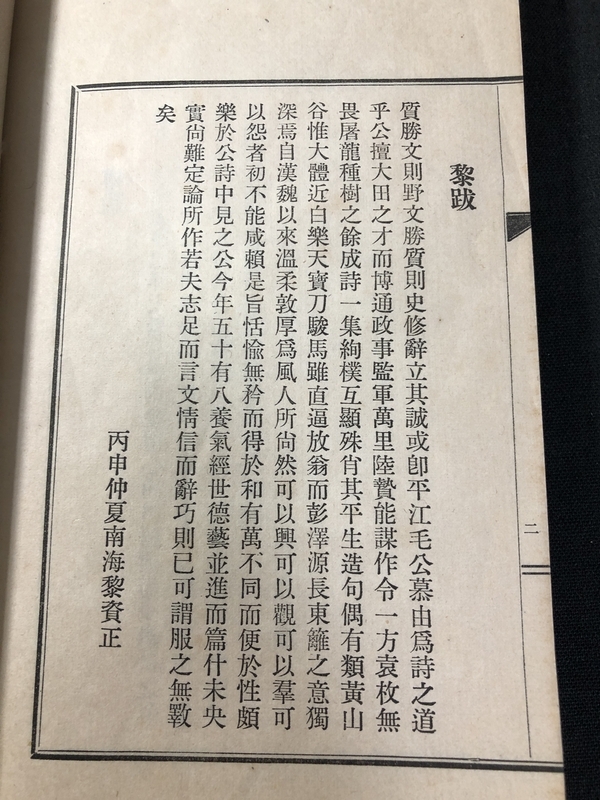 黎跋
質勝文則野文勝質則史修辭立其誠或卽平江毛公慕由爲詩之道
乎公擅大田之才而博通政事監軍萬里陸贄能謀作令一方袁枚無
畏屠龍種樹之餘成詩一集絢樸互顯殊肖其平生造句偶有類黃山
谷惟大體近白樂天寶刀駿馬雖直逼放翁而彭澤源長東籬之意獨
深焉自漢魏以來溫柔敦厚爲風人所尙然可以興可以觀可以羣可
以怨者初不能咸賴是旨恬愉無矜而得於和有萬不同而便於性頗
樂於公詩中見之公今年五十有八養氣經世德藝並進而篇什未央
實尙難定論所作若夫志足而言文情信而辭巧則已可謂服之無斁
矣
丙申仲夏南海黎資正
二